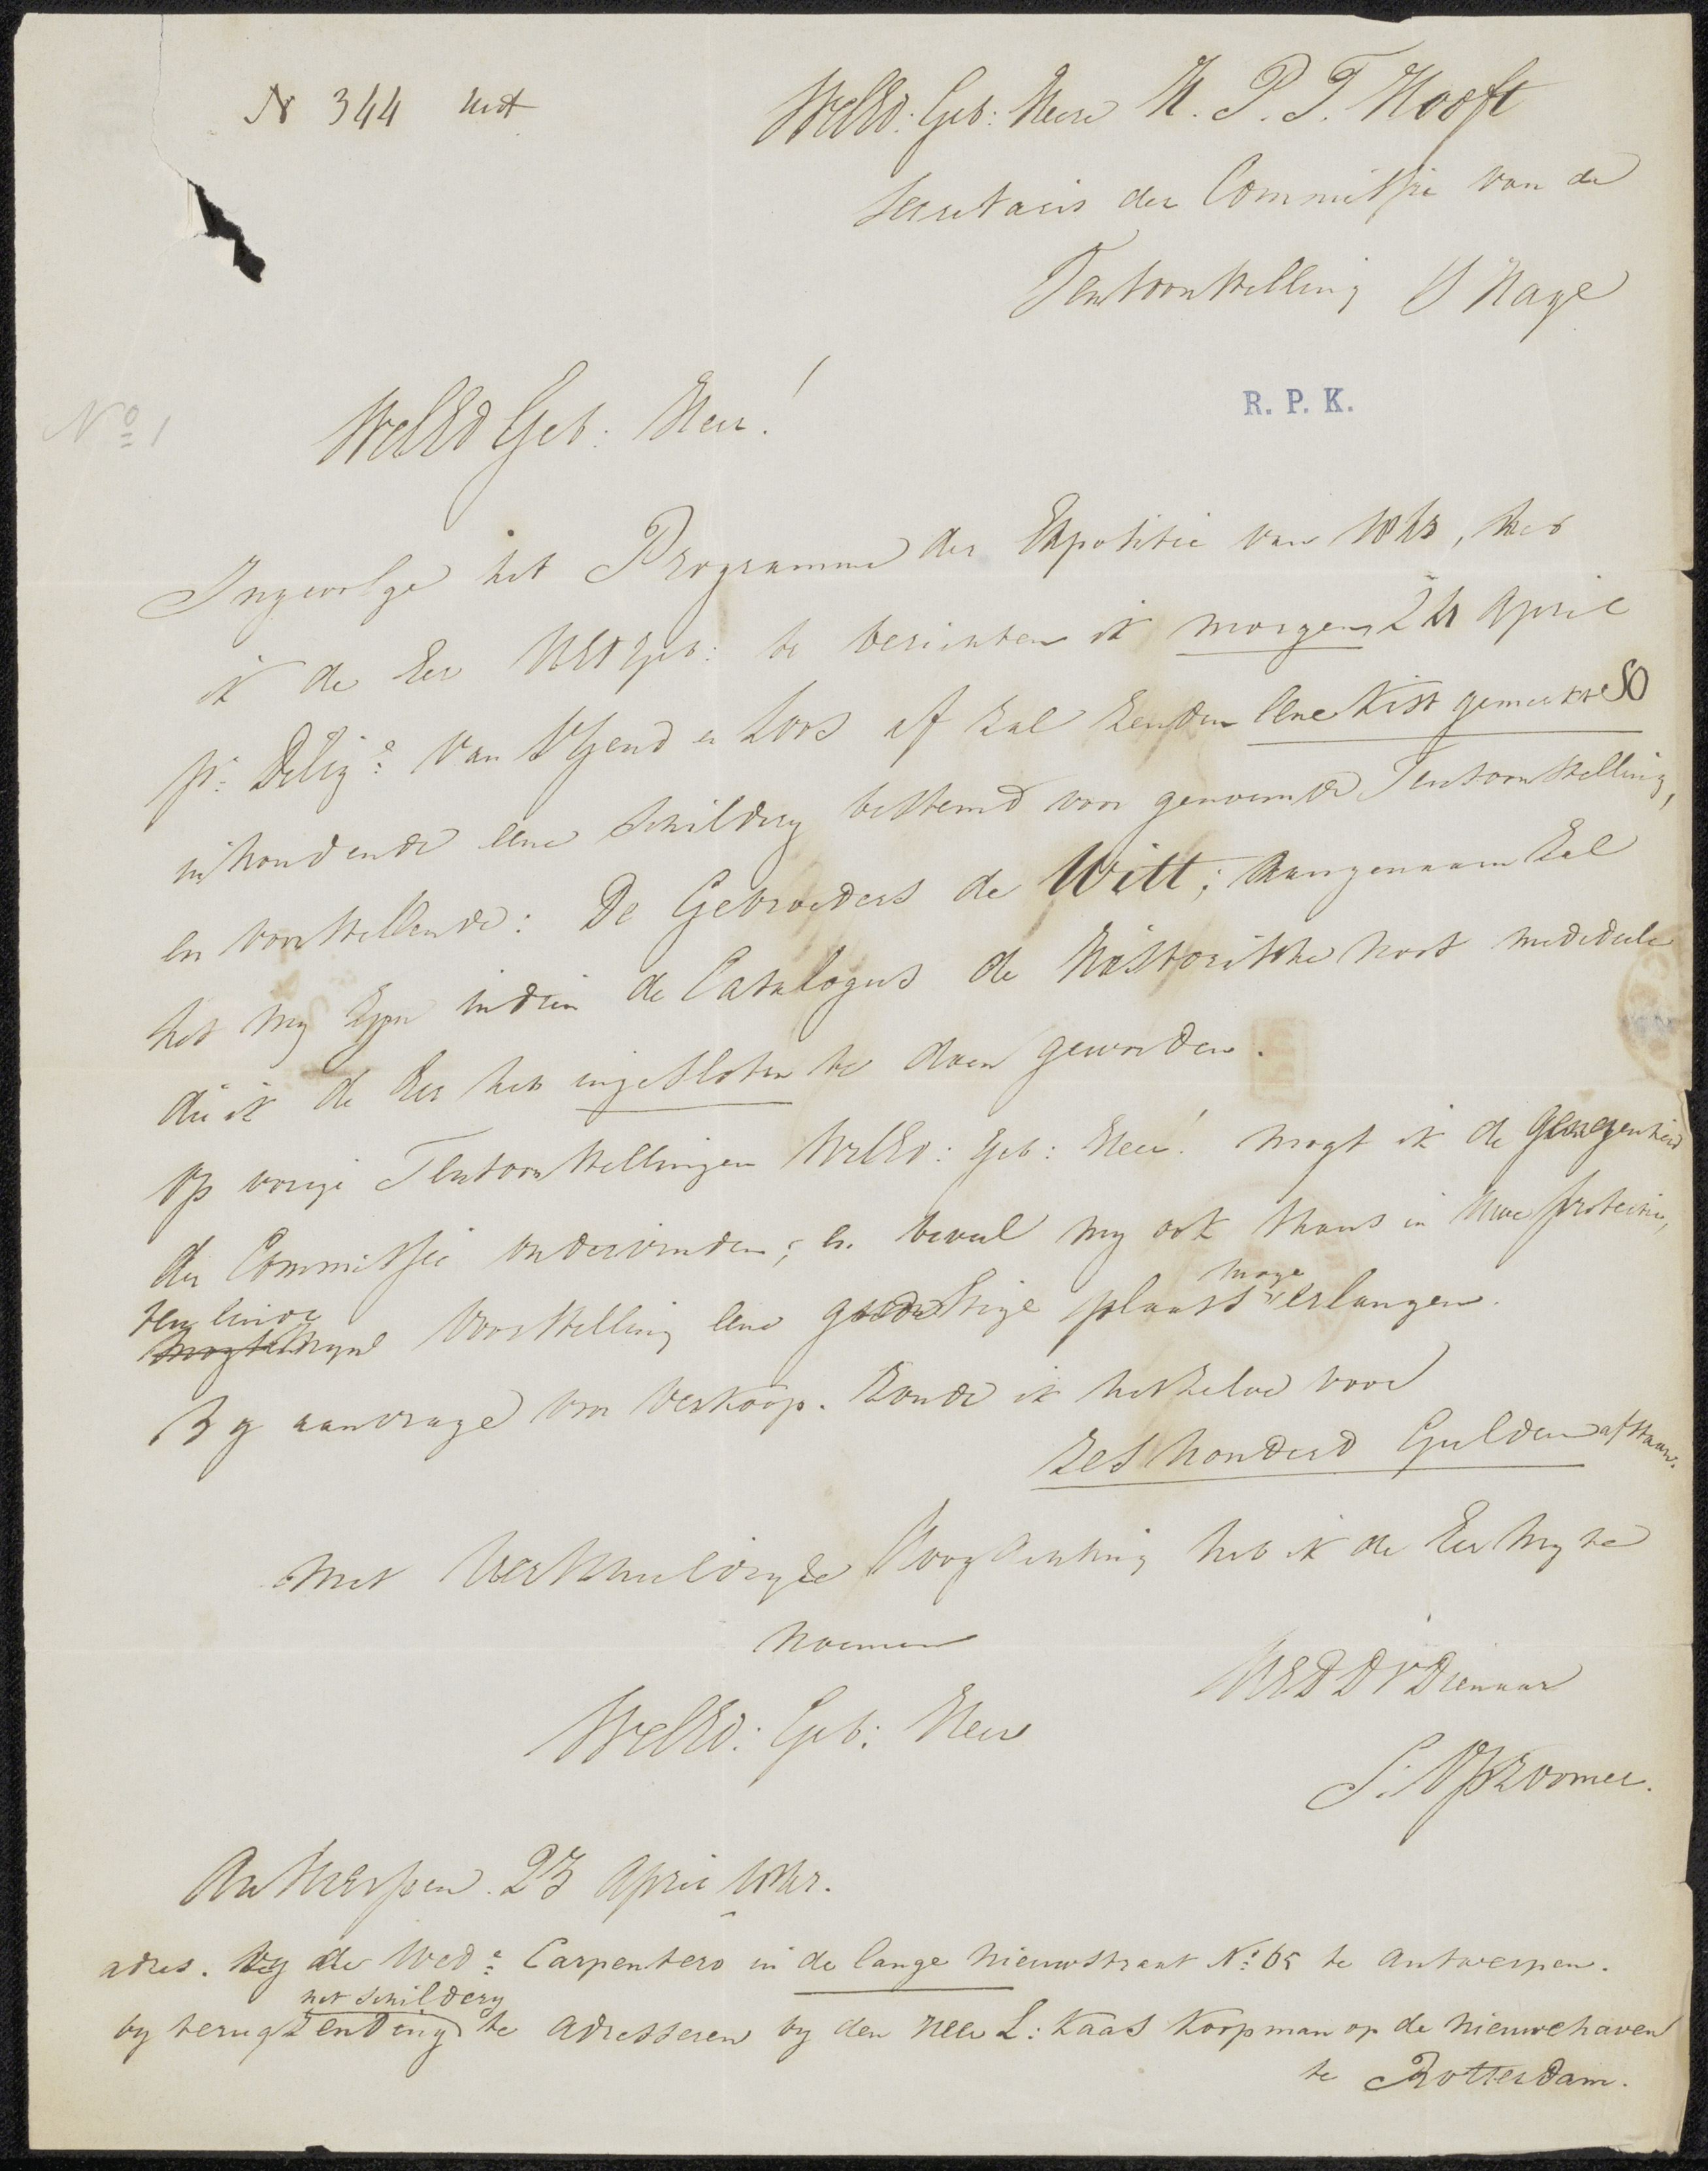 N 344 net
WelEd: Geb: Heere H. P. T. Hooft
Secretaris der Commissie van de
Tentoonstelling S Hage
R. P. K.
No 1
WelEd Geb: Heer!
Ingevolge het Programma der Expositie van, heb
ik de Eer UEdgeb: te berichten ik morgen 24 April
pr. Dilige van VGend en Loos af zal zenden Eene Kist gemerkt SO
inhoudende eene Schildery bestemd voor genoemde Tentoonstelling,
en voorstellende: De Gebroeders de Witt; Aangenaam zal
het my zyn indien de Catalogus de Historische noot mededeele
die ik de Eer heb ingesloten te doen geworden.
Op vorige Tentoonstellingen WelEd: Geb: Heer! mogt ik de genegenheid
der Commissie ondervinden; en beveel my ook thans in Uwe protectie,
ten einde myne Voorstelling eene gunstige plaats moge erlangen.
By aanvrage von Verkoop. Zoude ik hetzelve voor
Zes honderd Gulden afstaan.
Met Verschuldigde Hoogachting heb ik de Eer my te
noemen
WelEd: Geb: Heer
UEDDVDienaar
S. Opzoomer.
Antwerpen. 23 April.
adres. by de Wede Carpentero in de lange Nieuwstraat No 65 te Antwerpen.
het schildery
by terugzending te adresseren by den Heer L: Kaas Koopman op de Nieuwehaven
te Rotterdam.